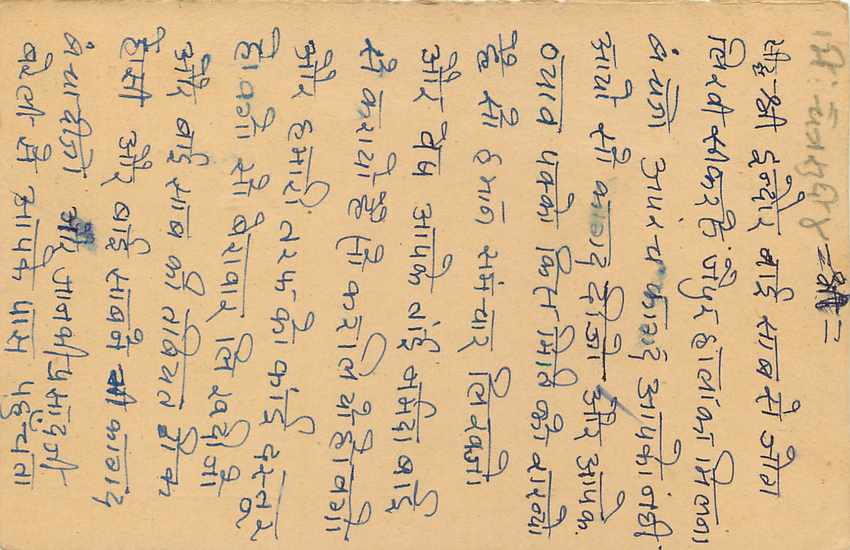 =श्री=
सीद्ध श्री इन्दोर बाई साब से जोग
लिखी सीकर से जेपुर हालां का मिलबा
बंचजो अपरंच कागद आपको नही
आयो सो कागद दीजो और आपक
ठयाव पक्को किस मिति को राख्यो
छ सो हमने समंचार लिखजो
और बेस आपके बांई नर्मदा बाई
से करायो है सो करा लियो होवगो
और हमारी तरफ को कांई दस्तूर
होवगो सो बेरावार लिखदीजो
और बाई साब की तबियत ठीक
होसी और बाई साबने भी कागद
बंचा दीजो और जानकी प्रसादजी
बरेली से आपके पास पहुंचता